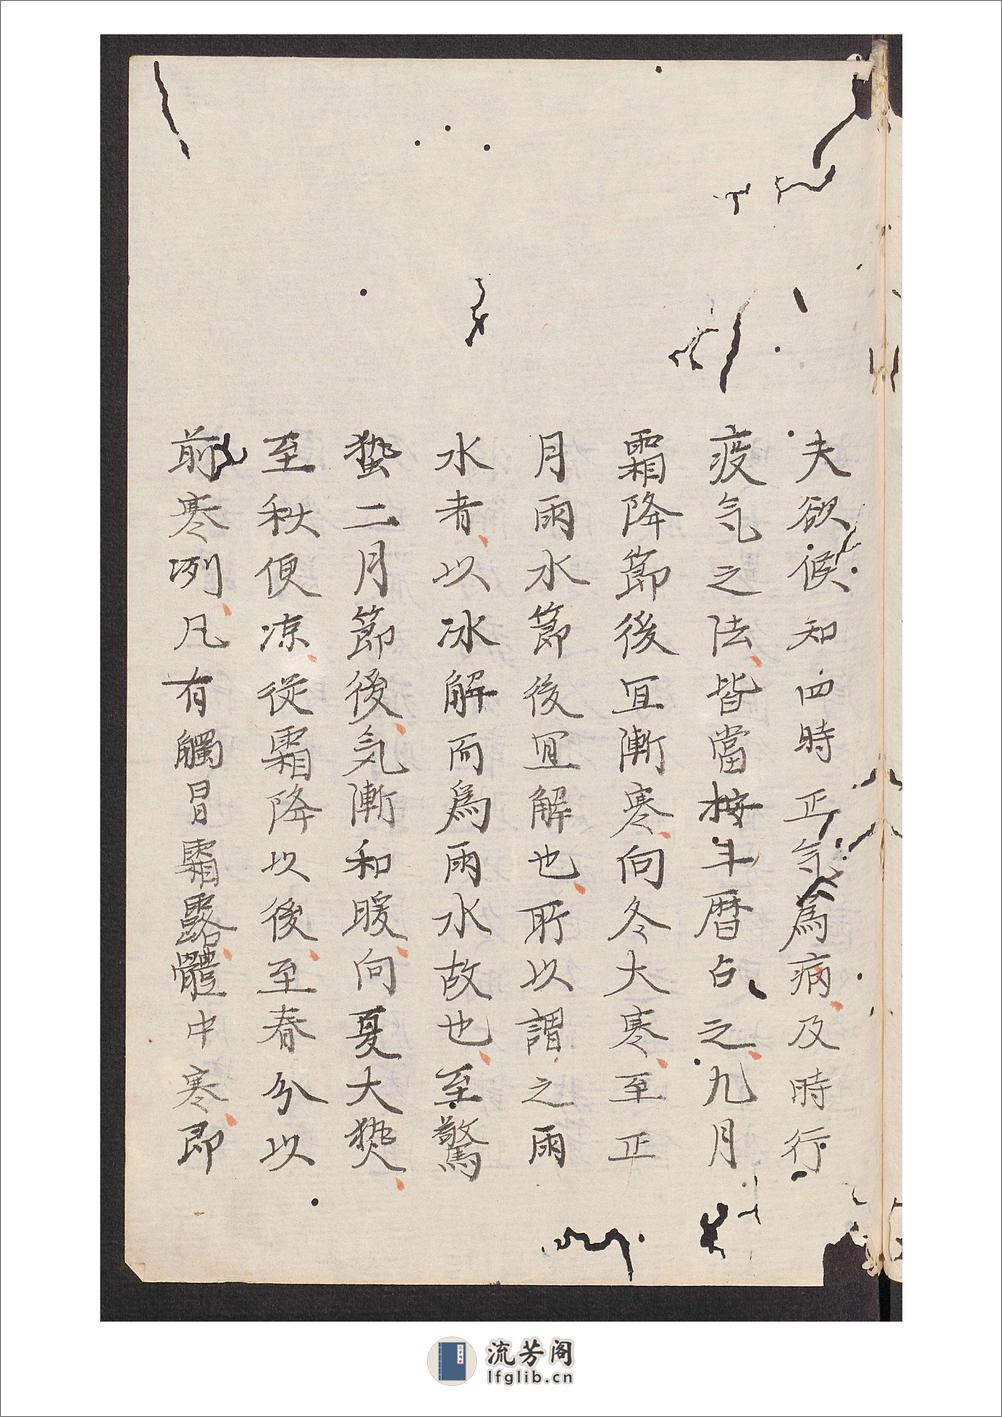 夫欲候知四時正气為病及時行
疫气之法皆當按斗暦占之九月
霜降節後冝漸寒向冬大寒至正
月雨水節後冝解也所以謂之雨
水者以冰解而爲雨水故也至驚
蟄二月節後気漸和暖向夏大熱
至秋便凉從霜降以後至春分以
前寒冽凡有觸冒霜露體中寒即
流芳阁
lfglib.cn